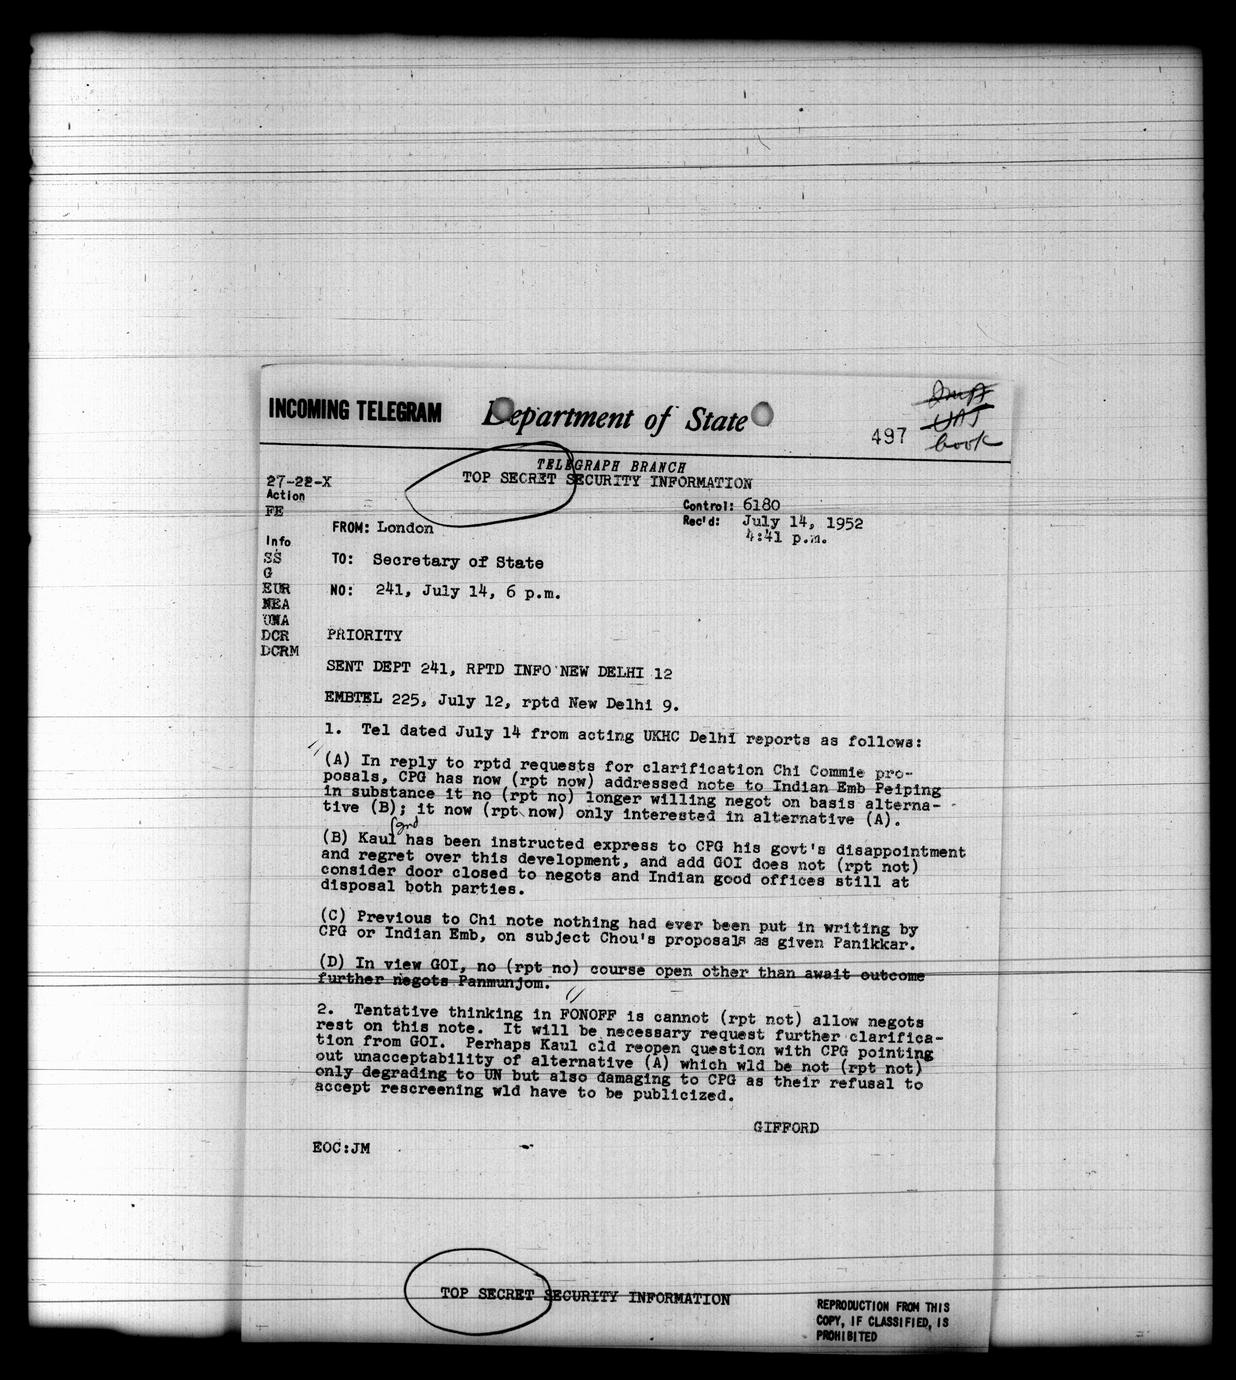 INCOMING TELEGRAM Department of State
497
UAJ
book
TELEGRAPH BRANCH
TOP SECRET SECURITY INFORMATION
27-22-X
Action
FE
Control: 6180
Rec'd: July 14, 1952
4:41 p.m.
FROM: London
Info
SS
G
EUR
NEA
UNA
DCR
DCRM
TO: Secretary of State
NO: 241, July 14, 6 p.m.
PRIORITY
SENT DEPT 241, RPTD INFO NEW DELHI 12
EMBTEL 225, July 12, rptd New Delhi 9.
1. Tel dated July 14 from acting UKHC Delhi reports as follows:
(A) In reply to rptd requests for clarification Chi Commie pro-
posals, CPG has now (rpt now) addressed note to Indian Emb Peiping
in substance it no (rpt no) longer willing negot on basis alterna-
tive (B); it now (rpt now) only interested in alternative (A).
(B) Kaul has been instructed express to CPG his govt's disappointment
and regret over this development, and add GOI does not (rpt not)
consider door closed to negots and Indian good offices still at
disposal both parties.
(C) Previous to Chi note nothing had ever been put in writing by
CPG or Indian Emb, on subject Chou's proposals as given Panikkar.
(D) In view GOI, no (rpt no) course open other than await outcome
further negots Panmunjom.
2. Tentative thinking in FONOFF is cannot (rpt not) allow negots
rest on this note. It will be necessary request further clarifica-
tion from GOI. Perhaps Kaul cld reopen question with CPG pointing
out unacceptability of alternative (A) which wld be not (rpt not)
only degrading to UN but also damaging to CPG as their refusal to
accept rescreening wld have to be publicized.
GIFFORD
EOC:JM
TOP SECRET SECURITY INFORMATION
REPRODUCTION FROM THIS
COPY, IF CLASSIFIED, IS
PROHIBITED